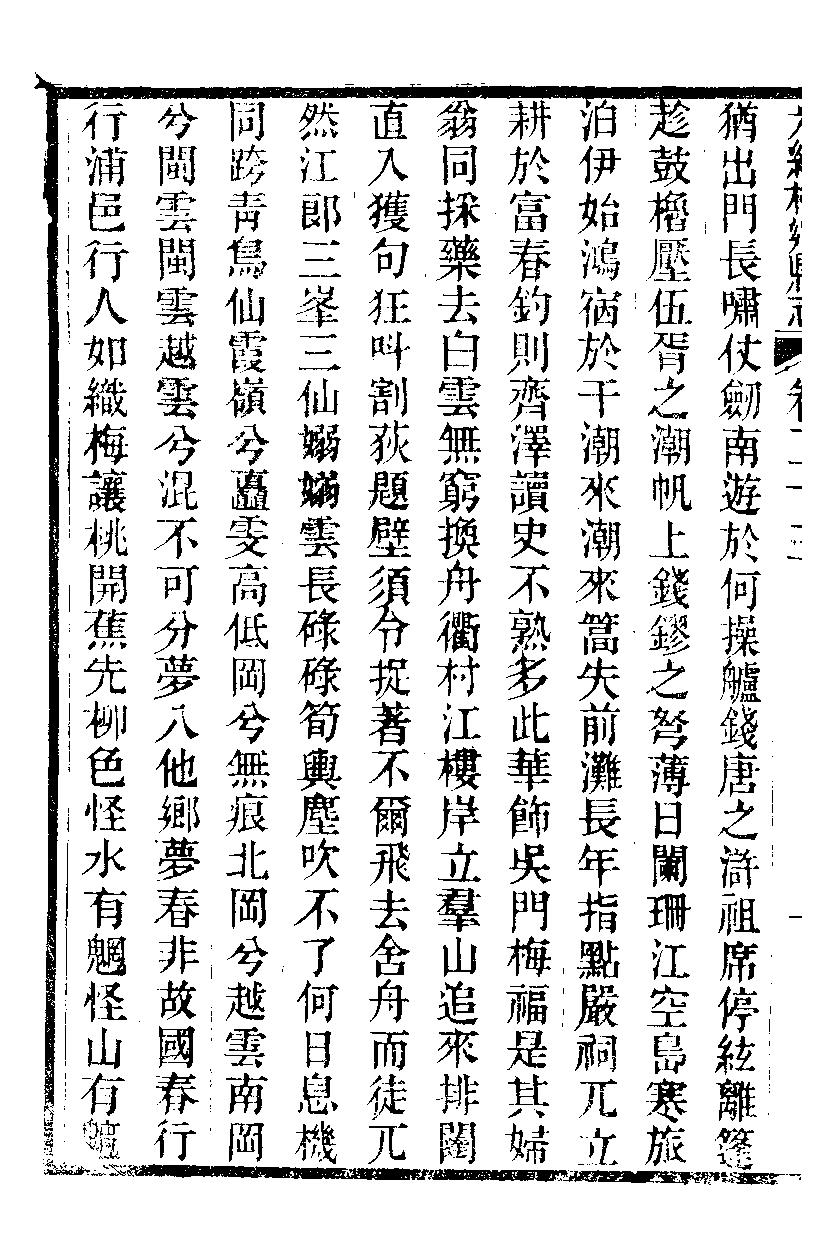 卷二十三
猶出門長嘯仗劒南遊於何操艫錢唐之滸祖席停絃離篷
趁鼓櫓壓伍胥之潮帆上錢鏐之弩薄日闌珊江空島寒旅
泊伊始鴻宿於干潮來潮來篙失前灘長年指點嚴祠兀立
耕於富春釣則齊澤讀史不熟多此華飾吳門梅福是其婦
翁同採藥去白雲無窮換舟衢村江樓岸立羣山追來排闥
直入獲句狂叫割荻題壁須令捉著不爾飛去舍舟而徒兀
然江郎三峯三仙嫋嫋雲長碌碌筍輿塵吹不了何日息機
同跨青鳥仙霞嶺兮矗雯高低岡兮無痕北岡兮越雲南岡
兮閩雲閩雲越雲兮混不可分夢入他鄉夢春非故國春行
行浦邑行人如織梅讓桃開蕉先柳色怪水有魍怪山有